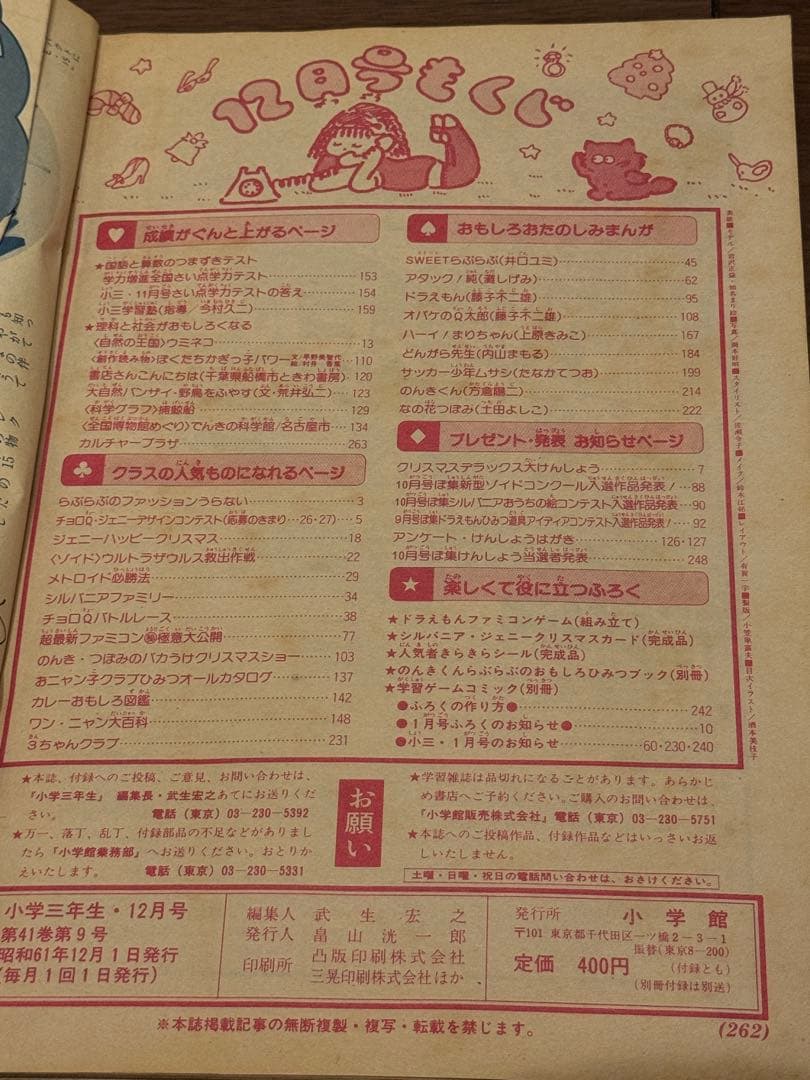 12月号もくじ
成績がぐんと上がるページ
★国語と算数のつまずきテスト
学力増進全国さい点学力テスト 153
小三・11月号さい点学力テストの答え 154
小三学習塾(指導/今村久二) 159
★理科と社会がおもしろくなる
〈自然の王国〉ウミネコ 13
〈創作読み物〉ぼくたちかぎっ子パワー 110
書店さんこんにちは(千葉県船橋市ときわ書房) 120
大自然バンザイ・野鳥をふやす(文・荒井弘二) 123
〈科学グラフ〉捕鯨船 129
〈全国博物館めぐり〉でんきの科学館/名古屋市 134
カルチャープラザ 263
クラスの人気ものになれるページ
らぶらぶのファッションうらない 3
チョロQ・ジェニーデザインコンテスト(応募のきまり…26・27) 5
ジェニーハッピークリスマス 18
〈ゾイド〉ウルトラザウルス救出作戦 22
メトロイド必勝法 29
シルバニアファミリー 34
チョロQバトルレース 38
超最新ファミコン㊙極意大公開 77
のんき・つぼみのバカうけクリスマスショー 103
おニャン子クラブひみつオールカタログ 137
カレーおもしろ図鑑 142
ワン・ニャン大百科 148
3ちゃんクラブ 231
おもしろおたのしみまんが
SWEETらぶらぶ(井口ユミ) 45
アタック!純(灘しげみ) 62
ドラえもん(藤子不二雄) 95
オバケのQ太郎(藤子不二雄) 108
ハーイ!まりちゃん(上原きみこ) 167
どんがら先生(内山まもる) 184
サッカー少年ムサシ(たなかてつお) 199
のんきくん(方倉陽二) 214
なの花つぼみ(土田よしこ) 222
プレゼント・発表 お知らせページ
クリスマスデラックス大けんしょう 7
10月号ぼ集新型ゾイドコンクール入選作品発表! 88
10月号ぼ集シルバニアおうちの絵コンテスト入選作品発表 90
9月号ぼ集ドラえもんひみつ道具アイディアコンテスト入選作品発表! 92
アンケート・けんしょうはがき 126・127
10月号ぼ集けんしょう当選者発表 248
楽しくて役に立つふろく
★ドラえもんファミコンゲーム(組み立て)
★シルバニア・ジェニークリスマスカード(完成品)
★人気者きらきらシール(完成品)
★のんきくんらぶらぶのおもしろひみつブック(別冊)
★学習ゲームコミック(別冊)
●ふろくの作り方● 242
●1月号ふろくのお知らせ● 10
●小三・1月号のお知らせ 60・230・240
★本誌、付録へのご投稿、ご意見、お問い合わせは、
「小学三年生」 編集長・武生宏之あてにお送りくだ
さい。 電話(東京)03-230-5392
★万一、落丁、乱丁、付録部品の不足などがありまし
たら「小学館業務部」へお送りください。おとりか
えいたします。 電話(東京)03-230-5331
お願い
★学習雑誌は品切れになることがあります。あらかじ
め書店へご予約ください。ご購入のお問い合わせは、
「小学館販売株式会社」電話(東京)03-230-5751
★本誌へのご投稿作品、付録作品などはいっさいお返
しいたしません。
土曜・日曜・祝日の電話問い合わせは、おさけください。
小学三年生・12月号
第41巻第9号
昭和61年12月1日発行
(毎月1回1日発行)
編集人 武生宏之
発行人 畠山洸一郎
印刷所 凸版印刷株式会社
三晃印刷株式会社ほか
発行所 小学館
〒101 東京都千代田区一ツ橋2-3-1
振替(東京8-200)
定価 400円 (付録とも)
(別冊付録は別送)
※本誌掲載記事の無断複製・複写・転載を禁じます。
(262)